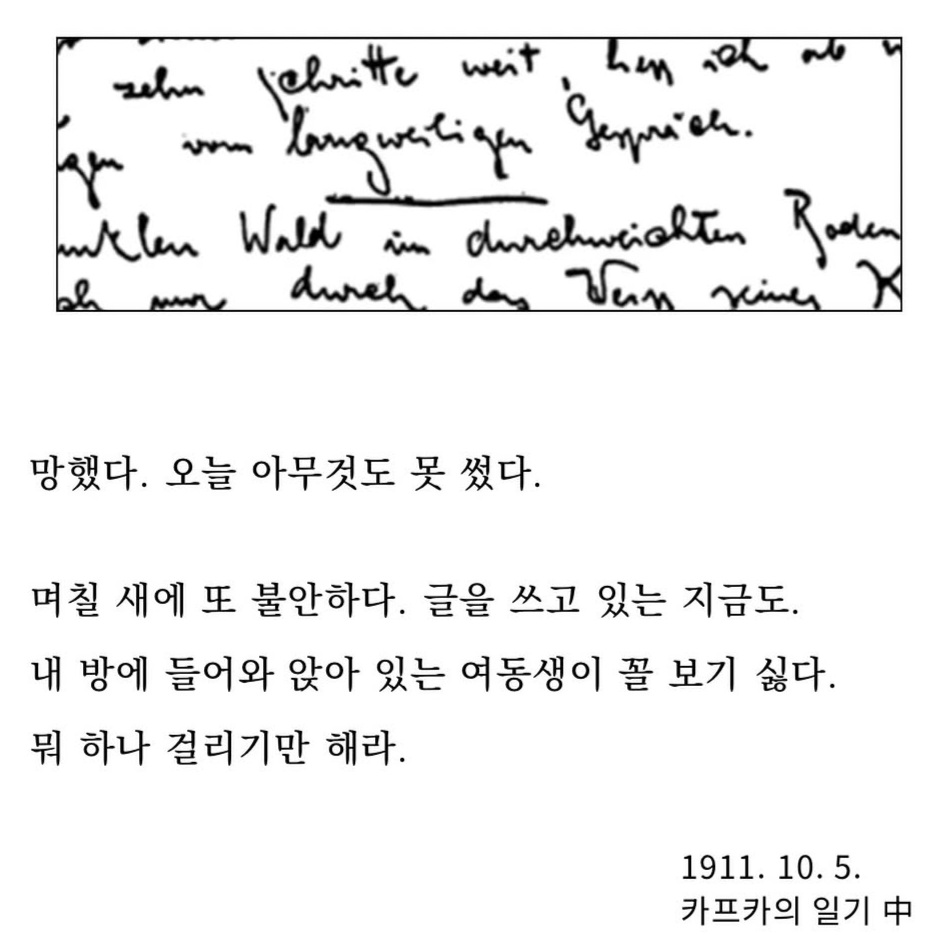 zehn Schritte weit,
vom langweiligen Gespräch.
Wald im durchweichten Boden
nur durch das
망했다. 오늘 아무것도 못 썼다.
며칠 새에 또 불안하다. 글을 쓰고 있는 지금도.
내 방에 들어와 앉아 있는 여동생이 꼴 보기 싫다.
뭐 하나 걸리기만 해라.
1911. 10. 5.
카프카의 일기 中